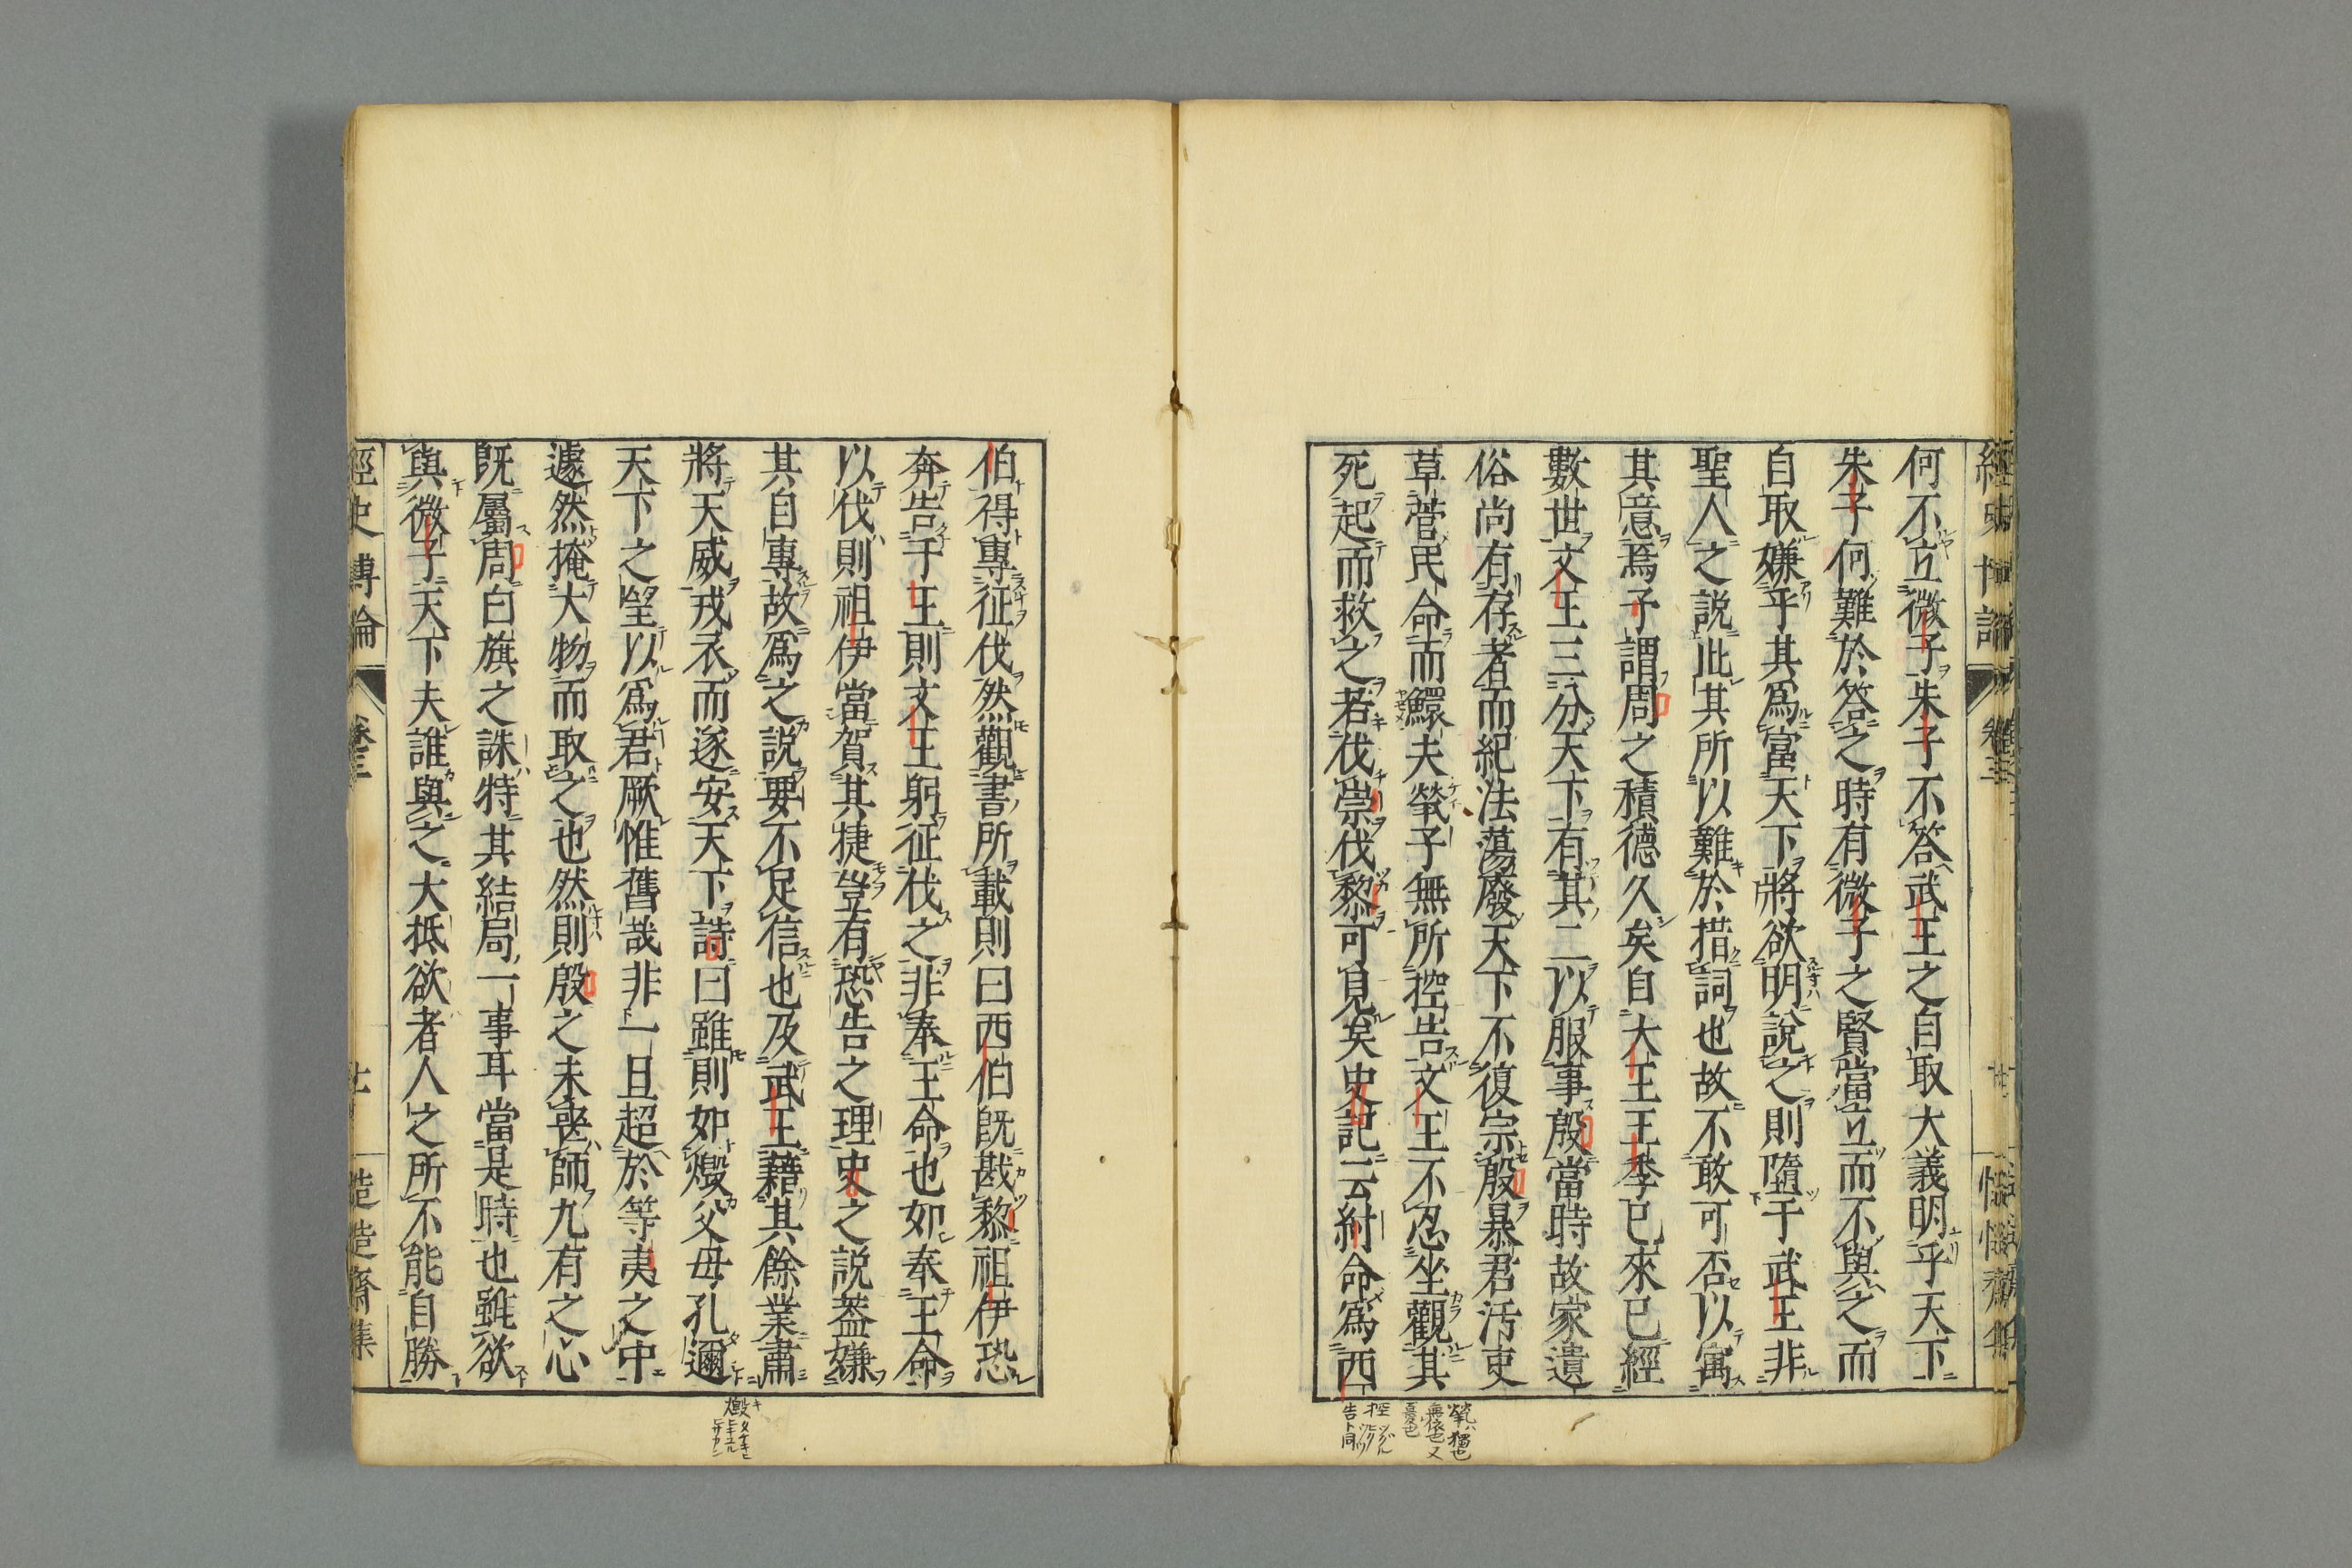 何不立微子朱子不答武王之自取大義明乎天下
朱子何難於答之時有微子之賢當立而不與之而
自取嫌乎其爲富天下將欲明說之則墮于武王非
聖人之說此其所以難於措詞也故不敢可否以寓
其意焉予謂周之積德久矣自大王王季已來已經
數世文王三分天下有其二以服事殷當時故家遺
俗尚有存者而紀法蕩廢天下不復宗殷暴君汚吏
草菅民命而鰥夫煢子無所控告文王不忍坐觀其
死起而救之若伐崇伐黎可見矣史記云紂命爲西
煢ハ獨也
無依也又
憂也
控 ツグル
告ト同
伯得專征伐然觀書所載則曰西伯旣戡黎祖伊恐
奔告于王則文王躬征伐之非奉王命也如奉王命
以伐則祖伊當賀其捷豈有恐告之理史之説葢嫌
其自專故爲之説要不足信也及武王藉其餘業肅
將天威戎衣而遂安天下詩曰雖則如燬父母孔邇
天下之望以爲君厥惟舊哉非一旦超於等夷之中
遽然掩大物而取之也然則殷之未喪師九有之心
旣屬周白旗之誅特其結局一事耳當是時也雖欲
與微子天下夫誰與之大抵欲者人之所不能自勝
經史博論 卷三